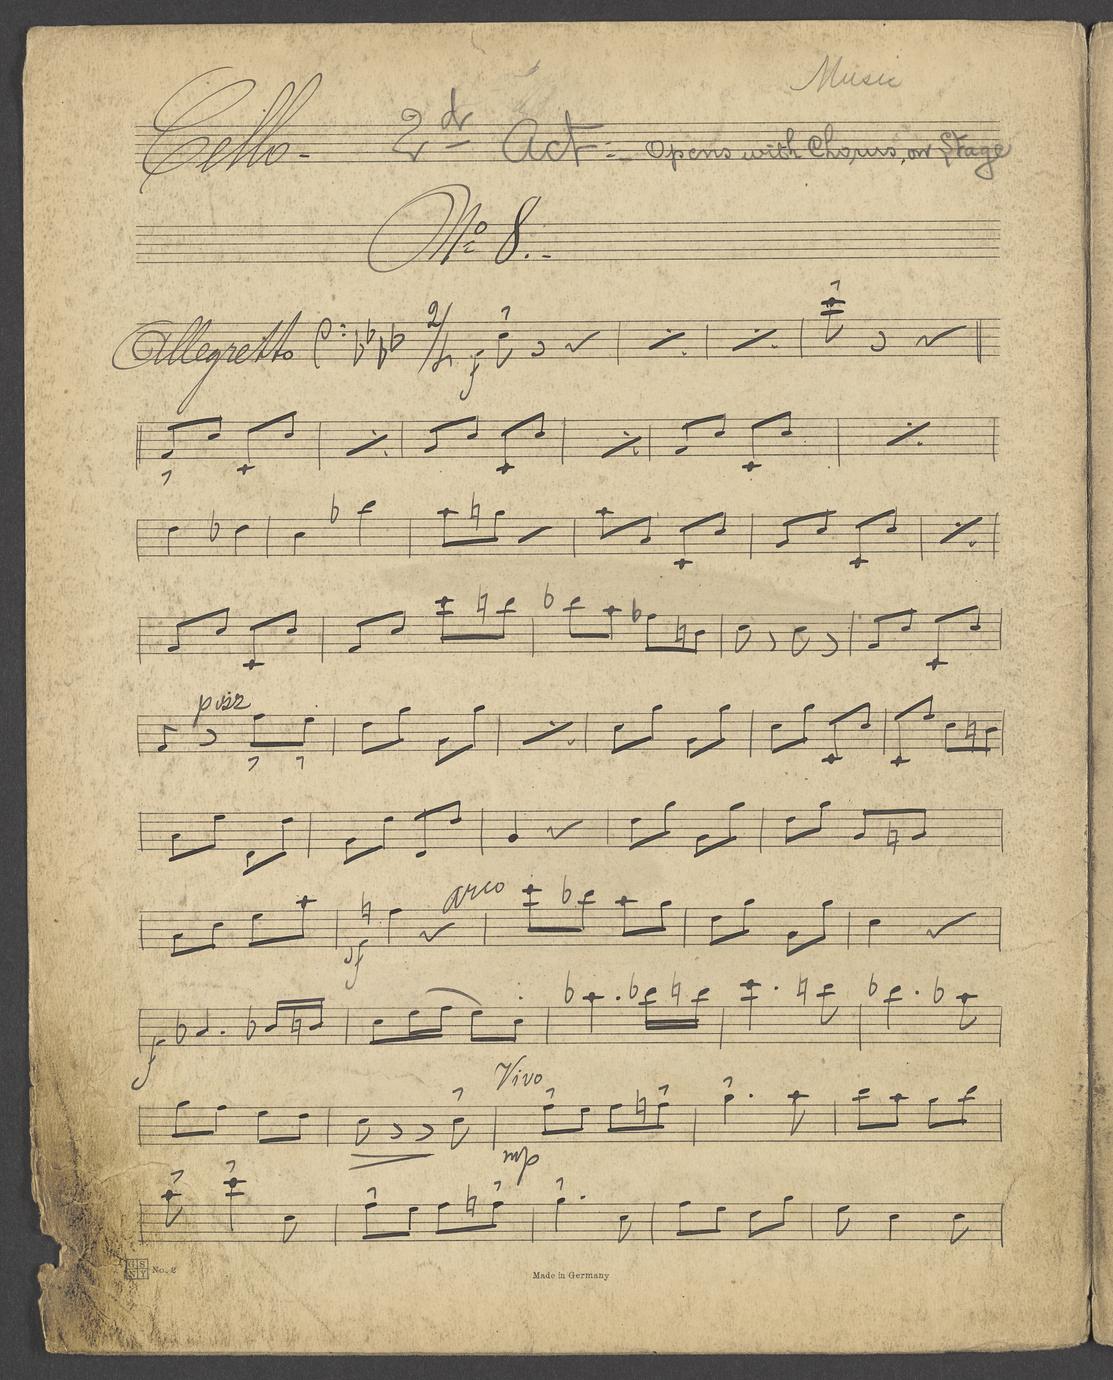 Music
Cello - 2d Act:- Opens with Chorus, on Stage
No 8.-
Allegretto 2/4 f
pizz
arco
sf
f
Vivo
mp
No. 2
Made in Germany